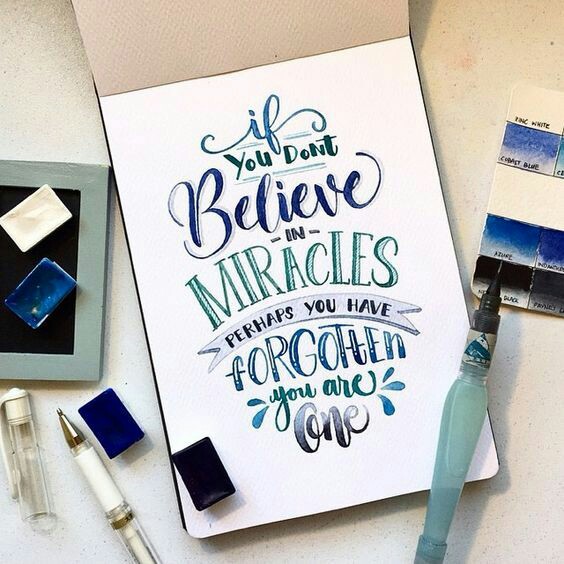 if
YOU DONT
Believe
- IN -
MIRACLES
PERHAPS YOU HAVE
FORGOTTEN
you are
One
ZINC WHITE
COBALT BLUE
AZURE
BLACK